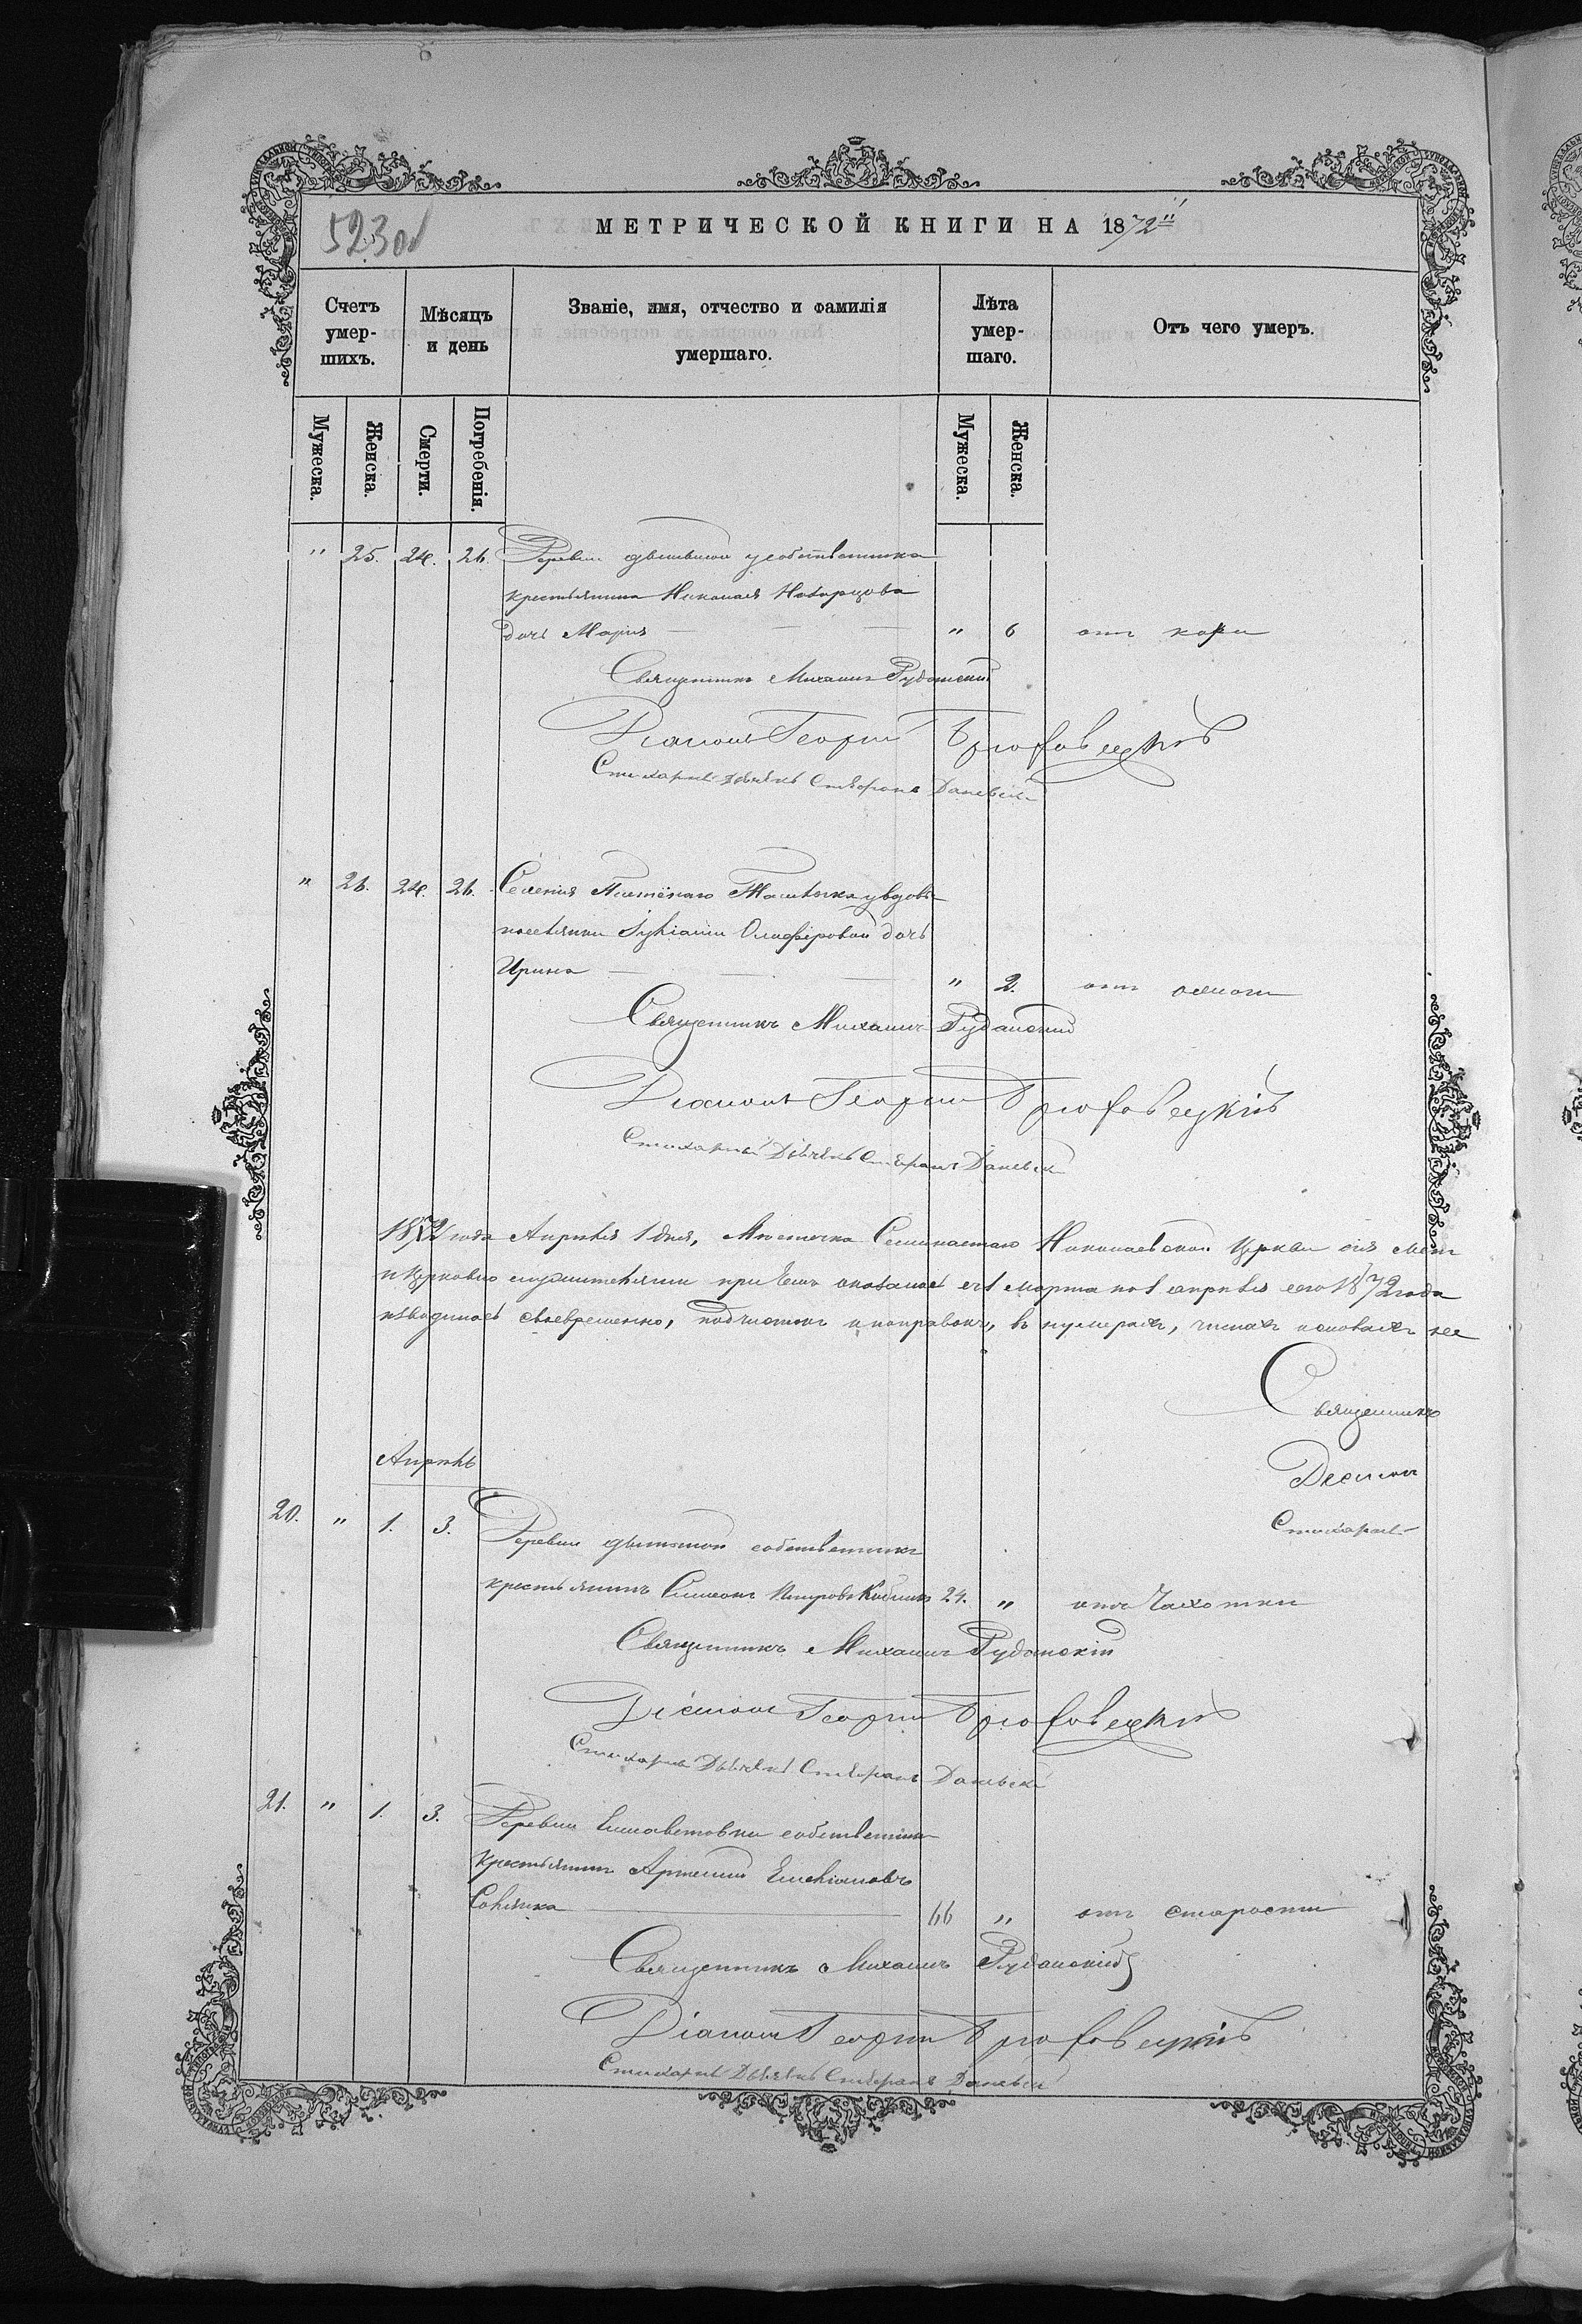 523 об
МЕТРИЧЕСКОЙ КНИГИ НА 1872
Счетъ умер-шихъ.
Мѣсяцъ и день
Званіе, имя, отчество и фамилія умершаго.
Лѣта умер-шаго.
Отъ чего умеръ.
Мужеска.
Женска.
Смерти.
Погребенія.
Мужеска.
Женска.
" 25. 24. 26. Деревни у собственника
крестьянина Николая
дочь Марія " 6 отъ кори
Священникъ Михаилъ Руданскій
Діаконъ Георгій Брюховецкій
Стихарный Дьячекъ Стефанъ Даневскі
" 26. 24. 26. Селенія Ташлыка у вдовы
поселянки дочь
Ирина " 2. отъ
Священникъ Михаилъ Руданскій
Діаконъ Георгій Брюховецкій
Стихарный Дьячекъ Стефанъ Даневскі
1872 года Апрѣля 1 дня, Мѣстечка Николаевской Церкви сія
и Церковно служителями при чемъ оказалось съ 1 марта по 1 апрѣля сего 1872 года
своевременно, подчистокъ и поправокъ, въ нумерахъ, числахъ и словахъ не
Священникъ
Діаконъ
Апрѣль
Стихарный
20. " 1. 3. Деревни собственникъ
крестьянинъ Симеонъ Петровъ 24. " отъ чахотки
Священникъ Михаилъ Руданскій
Діаконъ Георгій Брюховецкій
Стихарный Дьячекъ Стефанъ Даневскі
21. " 1. 3. Деревни Елисаветовки собственникъ
крестьянинъ Артемій
66 " отъ старости
Священникъ Михаилъ Руданскій
Діаконъ Георгій Брюховецкій
Стихарный Дьячекъ Стефанъ Даневскі